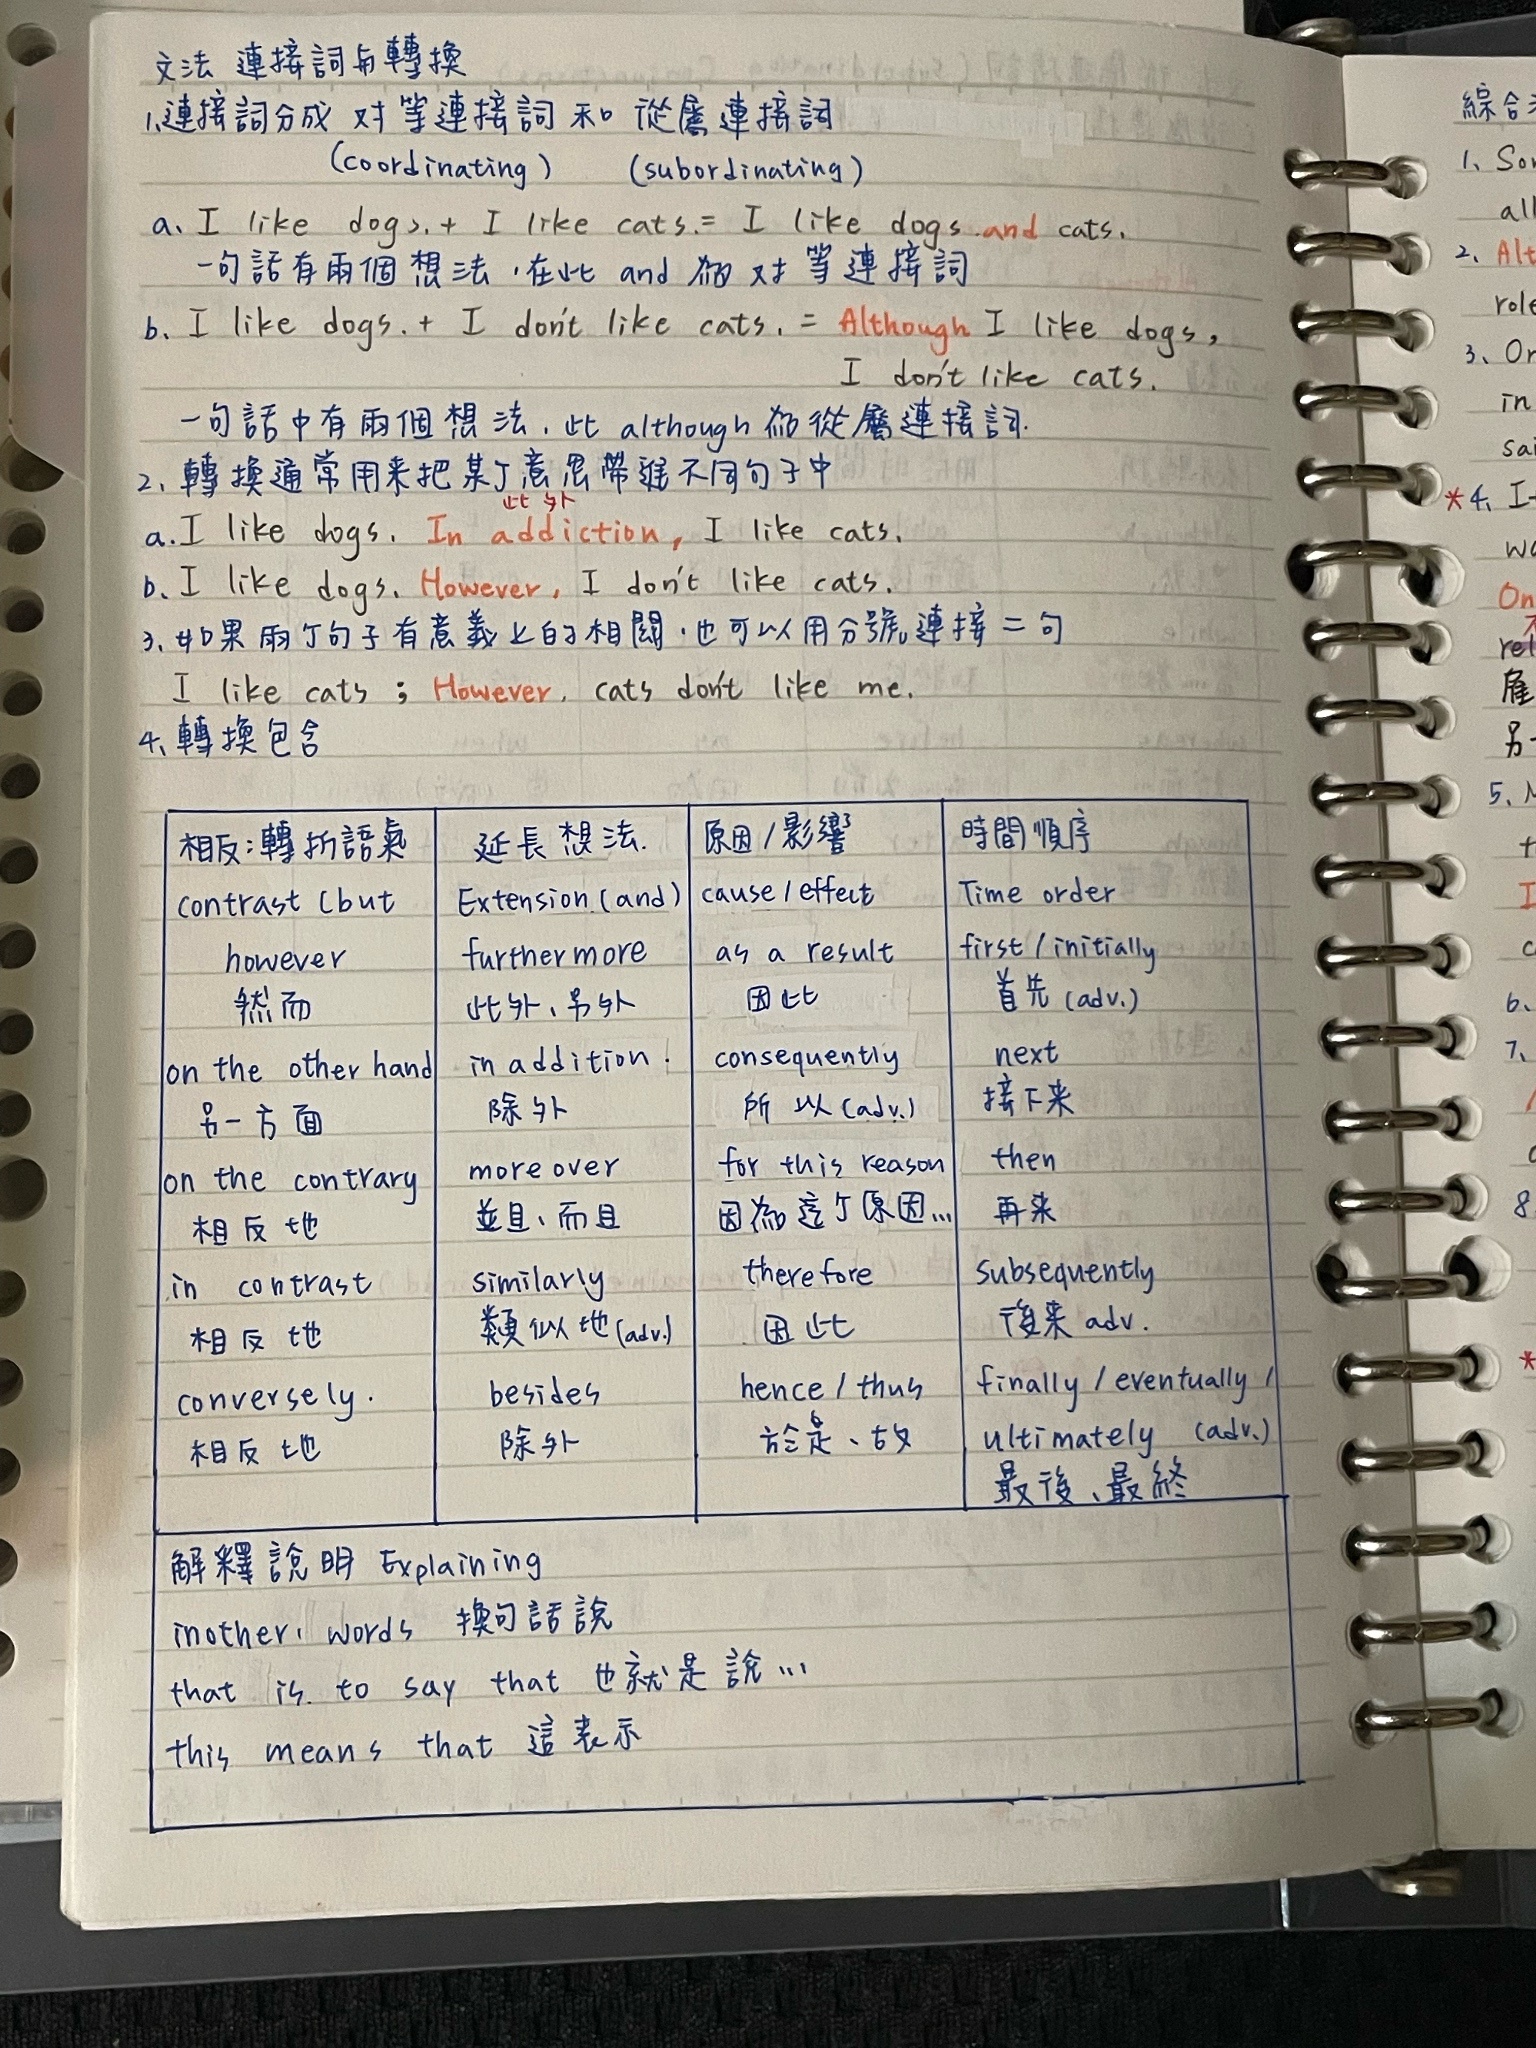 文法 連接詞与轉換
1.連接詞分成 对等連接詞 和 從屬連接詞
(coordinating) (subordinating)
a. I like dogs. + I like cats. = I like dogs and cats.
一句話有兩個想法,在此 and 為对等連接詞
b. I like dogs. + I don't like cats. = Although I like dogs,
I don't like cats.
一句話中有兩個想法,此 although 為從屬連接詞.
2. 轉換通常用来把某个意思帶進不同句子中
此外
a. I like dogs. In addiction, I like cats.
b. I like dogs. However, I don't like cats.
3. 如果兩个句子有意義上的相關,也可以用分號連接二句
I like cats ; However, cats don't like me.
4. 轉換包含
相反:轉折語氣
contrast (but
however
然而
on the other hand
另一方面
on the contrary
相反地
in contrast
相反地
conversely.
相反地
延長想法.
Extension (and)
furthermore
此外、另外
in addition.
除外
moreover
並且、而且
similarly
類似地(adv.)
besides
除外
原因/影響
cause/effect
as a result
因此
consequently
所以(adv.)
for this reason
因為这个原因...
therefore
因此
hence / thus
於是、故
時間順序
Time order
first / initially
首先 (adv.)
next
接下来
then
再来
subsequently
後来 adv.
finally / eventually /
ultimately (adv.)
最後、最終
解釋說明 Explaining
inother words 換句話說
that is to say that 也就是說...
this means that 這表示
1.
2.
role
3. Or
in
*4.
5.
6.
7.
8.
*